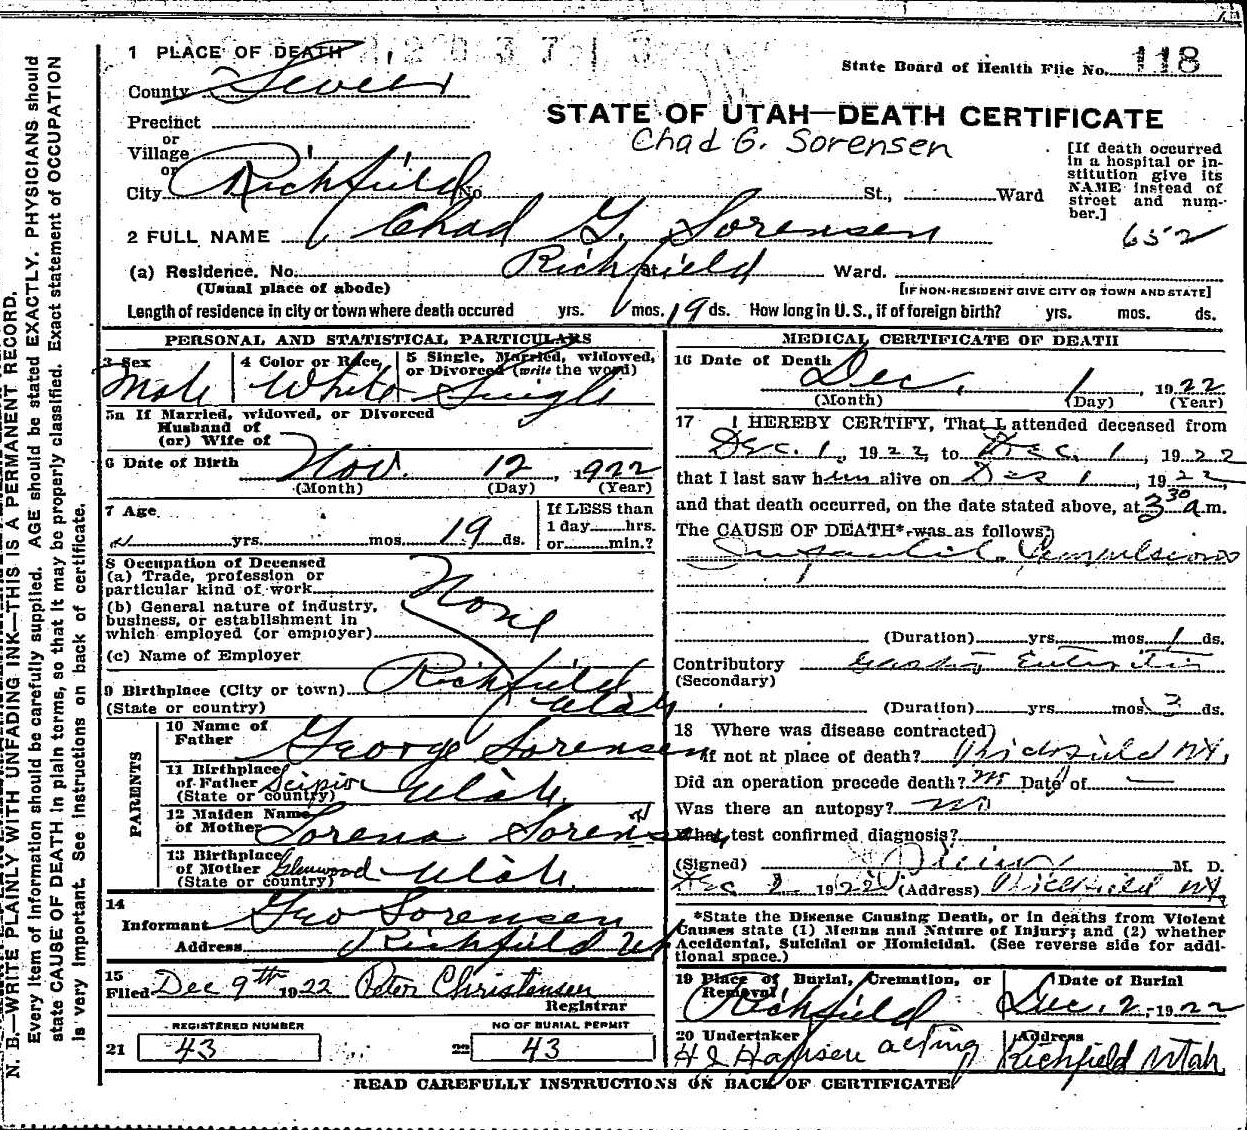 1 PLACE OF DEATH
State Board of Health File No. 118
County Sevier
STATE OF UTAH—DEATH CERTIFICATE
Precinct
or
Chad G. Sorensen
Village
or
City Richfield No. St., Ward
[If death occurred
in a hospital or in-
stitution give its
NAME instead of
street and num-
ber.]
652
2 FULL NAME Chad G. Sorensen
(a) Residence. No. Richfield St. Ward.
(Usual place of abode) [IF NON-RESIDENT GIVE CITY OR TOWN AND STATE]
Length of residence in city or town where death occured yrs. mos. 19 ds. How long in U. S., if of foreign birth? yrs. mos. ds.
PERSONAL AND STATISTICAL PARTICULARS
3 Sex 4 Color or Race, 5 Single, Married, widowed,
or Divorced (write the word)
Male White Single
5a If Married, widowed, or Divorced
Husband of
(or) Wife of
6 Date of Birth Nov. 12, 1922
(Month) (Day) (Year)
7 Age If LESS than
1 day hrs.
yrs. mos. 19 ds. or min.?
8 Occupation of Deceased
(a) Trade, profession or
particular kind of work None
(b) General nature of industry,
business, or establishment in
which employed (or employer)
(c) Name of Employer
9 Birthplace (City or town) Richfield
(State or country) Utah
PARENTS
10 Name of
Father George Sorensen
11 Birthplace
of Father Scipio Utah.
(State or country)
12 Maiden Name
of Mother Lorena Sorensen
13 Birthplace
of Mother Glenwood Utah.
(State or country)
14
Informant Geo Sorensen
Address Richfield Ut
15
Filed Dec 9th 1922 Peter Christensen
Registrar
REGISTERED NUMBER NO OF BURIAL PERMIT
21 43 22 43
MEDICAL CERTIFICATE OF DEATH
16 Date of Death Dec. 1, 1922
(Month) (Day) (Year)
17 I HEREBY CERTIFY, That I attended deceased from
Dec. 1, 1922, to Dec. 1, 1922
that I last saw him alive on Dec 1, 1922,
and that death occurred, on the date stated above, at 3 30 a.m.
The CAUSE OF DEATH* was as follows:
Infantile Convulsions
(Duration) yrs. mos. 1 ds.
Contributory Gastro Enteritis
(Secondary)
(Duration) yrs. mos. 3 ds.
18 Where was disease contracted
if not at place of death? Richfield Ut.
Did an operation precede death? no Date of —
Was there an autopsy? no
What test confirmed diagnosis?
(Signed) M. D.
Dec 2 1922 (Address) Richfield Ut.
*State the Disease Causing Death, or in deaths from Violent
Causes state (1) Means and Nature of Injury; and (2) whether
Accidental, Suicidal or Homicidal. (See reverse side for addi-
tional space.)
19 Place of Burial, Cremation, or Date of Burial
Removal Richfield Dec. 2, 1922
20 Undertaker Address
H J Hansen acting Richfield Utah
READ CAREFULLY INSTRUCTIONS ON BACK OF CERTIFICATE
N. B.—WRITE PLAINLY WITH UNFADING INK—THIS IS A PERMANENT RECORD.
Every item of information should be carefully supplied. AGE should be stated EXACTLY. PHYSICIANS should
state CAUSE OF DEATH in plain terms, so that it may be properly classified. Exact statement of OCCUPATION
is very important. See instructions on back of certificate.